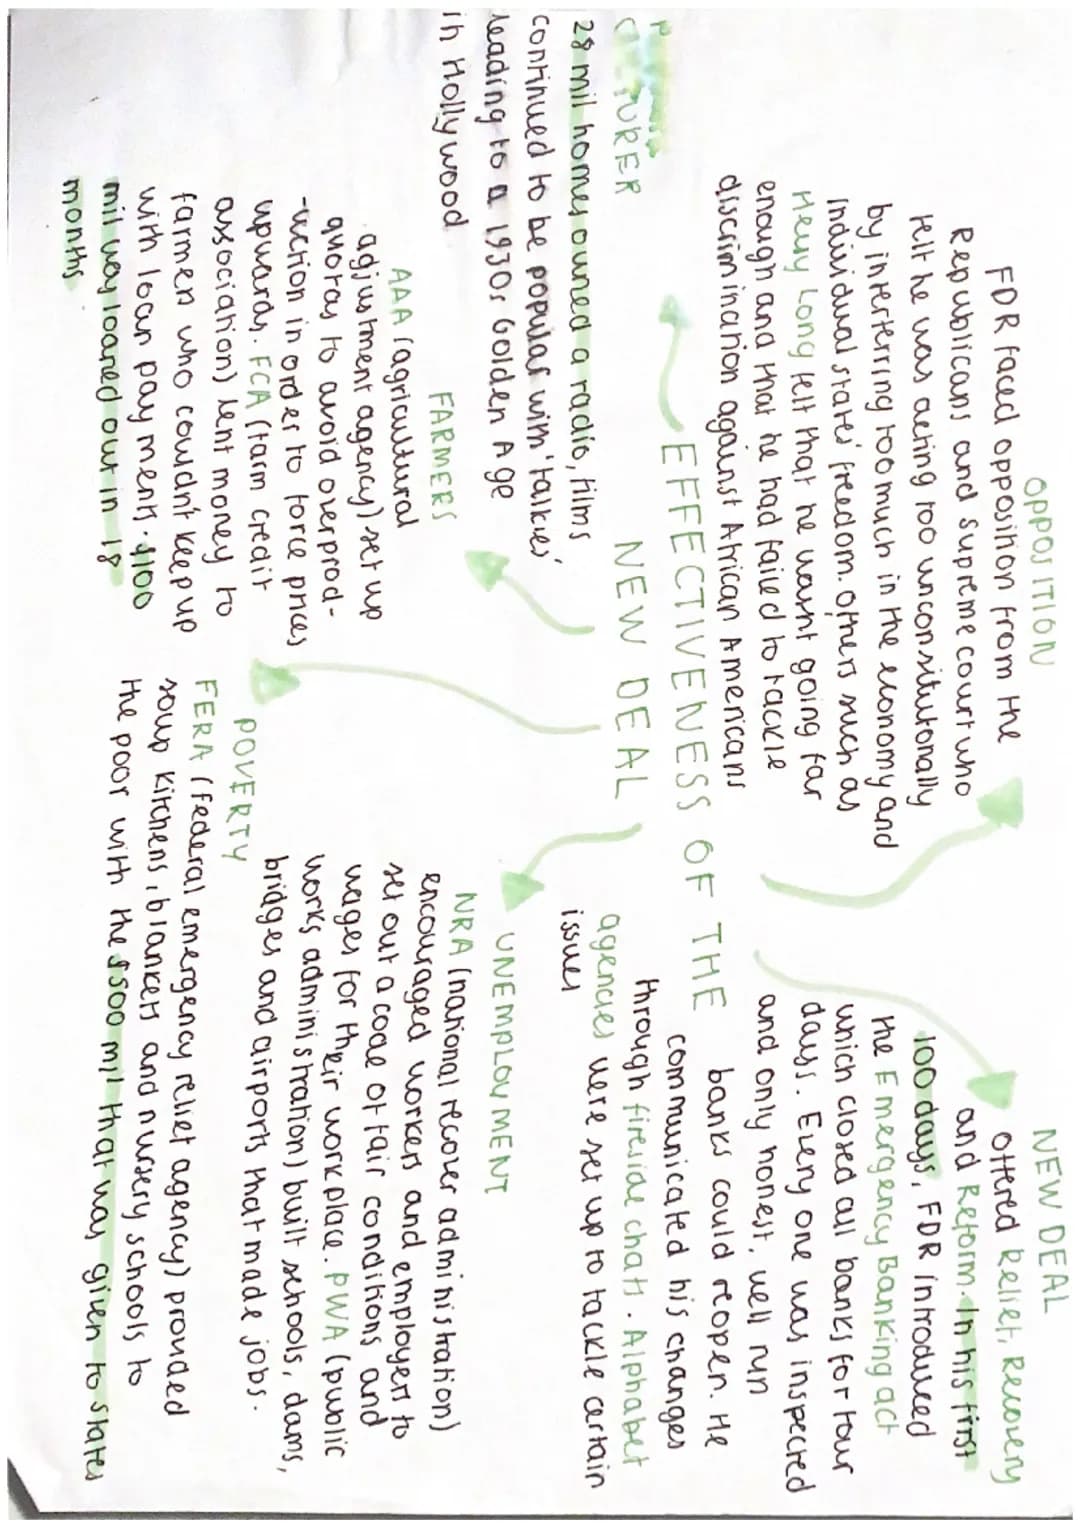 OPPOSITION
FDR faced opposition from the
Republicans and supreme court who
felt he was acting too unconsitutonally
by interferring too much in the economy and
individual states' freedom. Others such as
Heuy Long felt that he wasnt going far
enough and that he had failed to tackle
discrimination against African Americans
NEW DEAL
Offered Relief, Recovery
and Reform. In his first
100 days, FDR introduced
the Emergency Banking act
which closed all banks for four
days. Every one was inspected
and only honest, well run
banks could reopen. He
communicated his changes
through fireside chats. Alphabet
agencies were set up to tackle certain
issues
EFFECTIVENESS OF THE
NEW DEAL
28 mil homes owned a radio, films
continued to be popular with 'talkies'
leading to a 1930s Golden Age
in Hollywood
FARMERS
AAA (agricultural
adjustment agency) set up
quotas to avoid overprod-
-uction in order to force prices
upwards. FCA (farm credit
association) lent money to
farmers who couldn't keep up
with loan payments. $100
mil was loaned out in 18
months
UNEMPLOYMENT
NRA (national recover administration)
encouraged workers and employers to
set out a code of fair conditions and
wages for their workplace. PWA (public
works administration) built schools, dams,
bridges and airports that made jobs.
POVERTY
FERA (federal emergency relief agency) provided
soup kitchens, blankets and nursery schools to
the poor with the $500 mil that was given to states